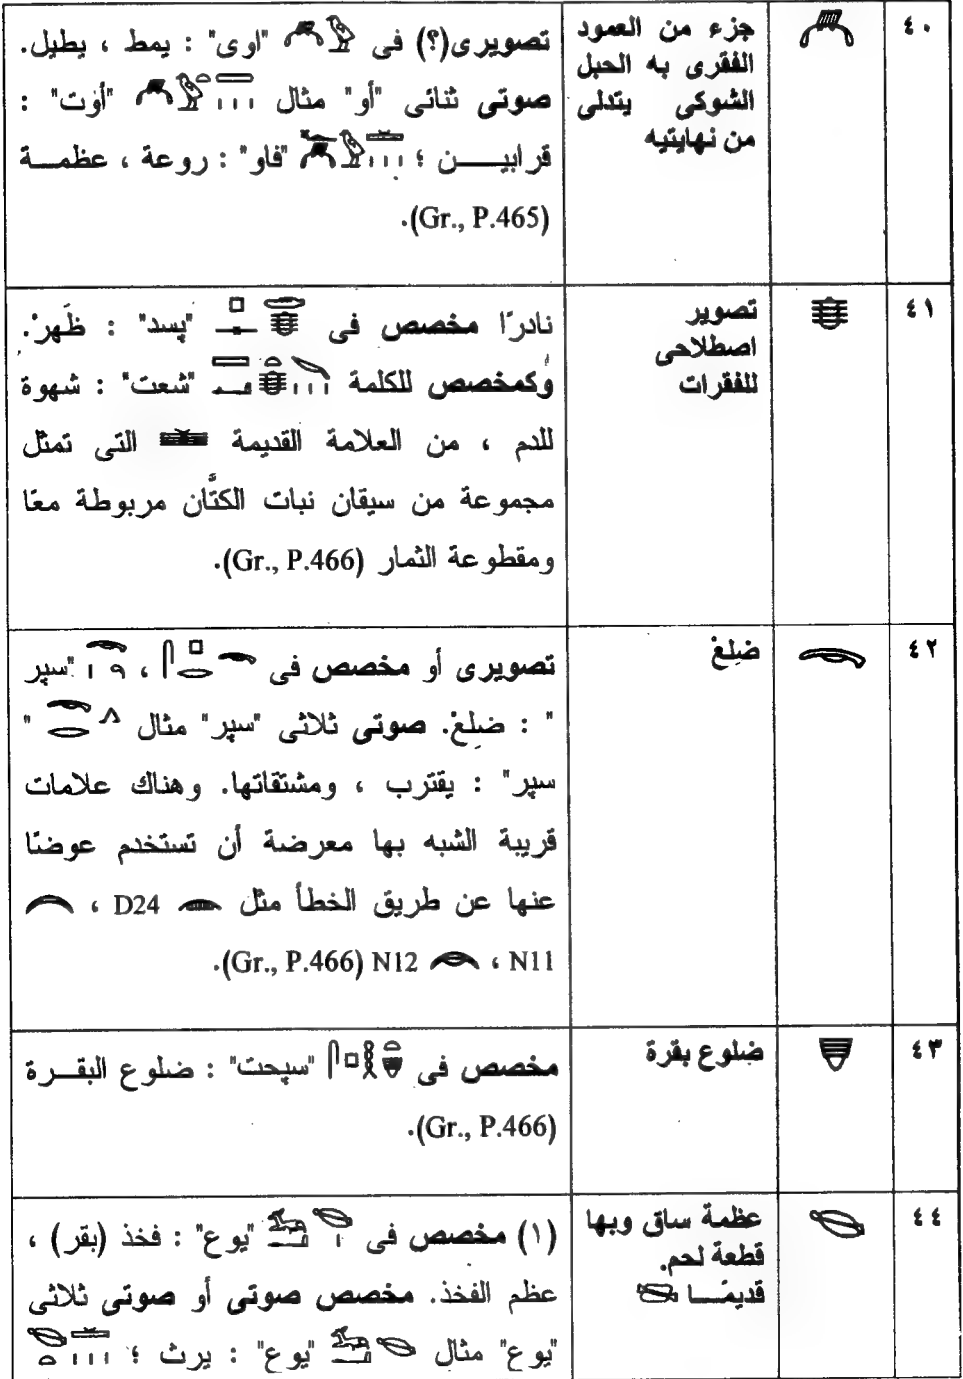 ٤٠
جزء من العمود
الفقرى به الحبل
الشوكى يتدلى
من نهايتيه
تصويرى(؟) فى "اوى" : يمط ، يطيل.
صوتى ثنائى "أو" مثال "أوت" :
قرابيــــن ؛ "فاو" : روعة ، عظمـــة
(Gr., P.465).
٤١
تصوير
اصطلاحى
للفقرات
نادرًا مخصص فى "پسد" : ظَهرْ.
وكمخصص للكلمة "شعت" : شهوة
للدم ، من العلامة القديمة التى تمثل
مجموعة من سيقان نبات الكتَّان مربوطة معًا
ومقطوعة الثمار (Gr., P.466).
٤٢
ضِلعْ
تصويرى أو مخصص فى ، "سپر
" : ضلِعْ. صوتى ثلاثى "سپر" مثال "
سپر" : يقترب ، ومشتقاتها. وهناك علامات
قريبة الشبه بها معرضة أن تستخدم عوضًا
عنها عن طريق الخطأ مثل D24 ،
N11 ، N12 (Gr., P.466).
٤٣
ضلوع بقرة
مخصص فى "سپحت" : ضلوع البقـــرة
(Gr., P.466).
٤٤
عظمة ساق وبها
قطعة لحم.
قديمًـــا
(١) مخصص فى "يوع" : فخذ (بقر) ،
عظم الفخذ. مخصص صوتى أو صوتى ثلاثى
"يوع" مثال "يوع" : يرث ؛